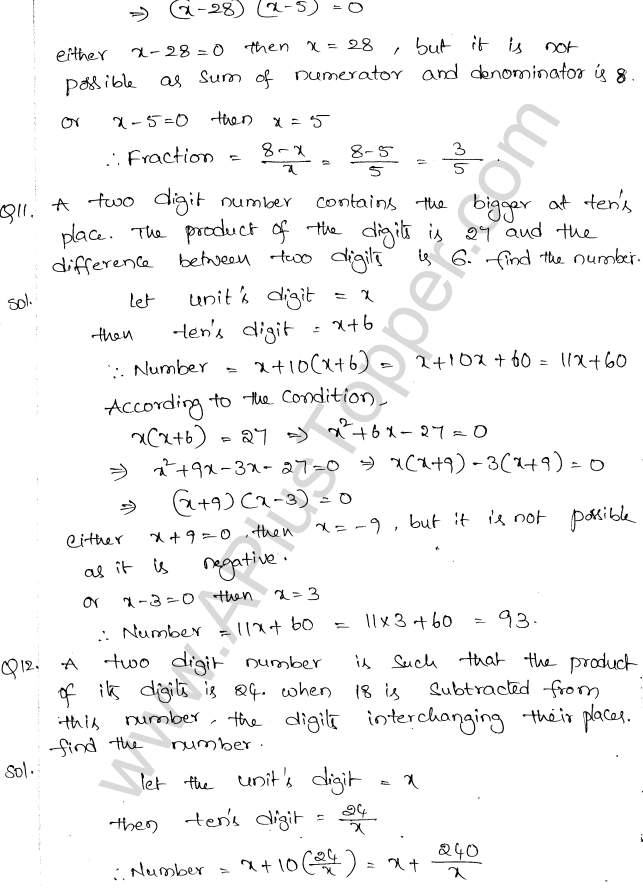 ⇒ (x-28) (x-5) = 0
either x-28=0 then x = 28 , but it is not
possible as sum of numerator and denominator is 8.
or x-5=0 then x = 5
∴ Fraction = (8-x)/x = (8-5)/5 = 3/5 .
Q11. A two digit number contains the bigger at ten's
place. The product of the digits is 27 and the
difference between two digits is 6. find the number.
Sol. Let unit's digit = x
then ten's digit = x+6
∵ Number = x+10(x+6) = x+10x+60 = 11x+60
According to the condition,
x(x+6) = 27 ⇒ x²+6x-27=0
⇒ x²+9x-3x-27=0 ⇒ x(x+9)-3(x+9)=0
⇒ (x+9)(x-3)=0
either x+9=0, then x=-9, but it is not possible
as it is negative.
or x-3=0 then x=3
∴ Number = 11x+60 = 11x3+60 = 93.
Q12. A two digit number is such that the product
of its digits is 24. when 18 is subtracted from
this number, the digits interchanging their places.
find the number.
Sol. let the unit's digit = x
then ten's digit = 24/x
∴ Number = x+10(24/x) = x + 240/x
www.APlusTopper.com